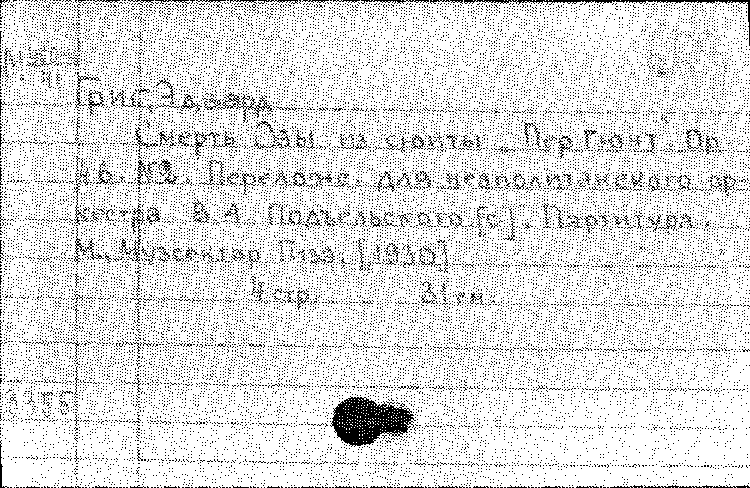 Григ, Эдвард
Смерть Озы из сюиты „Пер Гюнт". Ор.
46. №2. Перелож. для неаполитанского ор-
кестра В. А. Подъельского [с]. Партитура.
М., Музсектор Гиза, [1930]
4 стр. 31 см.